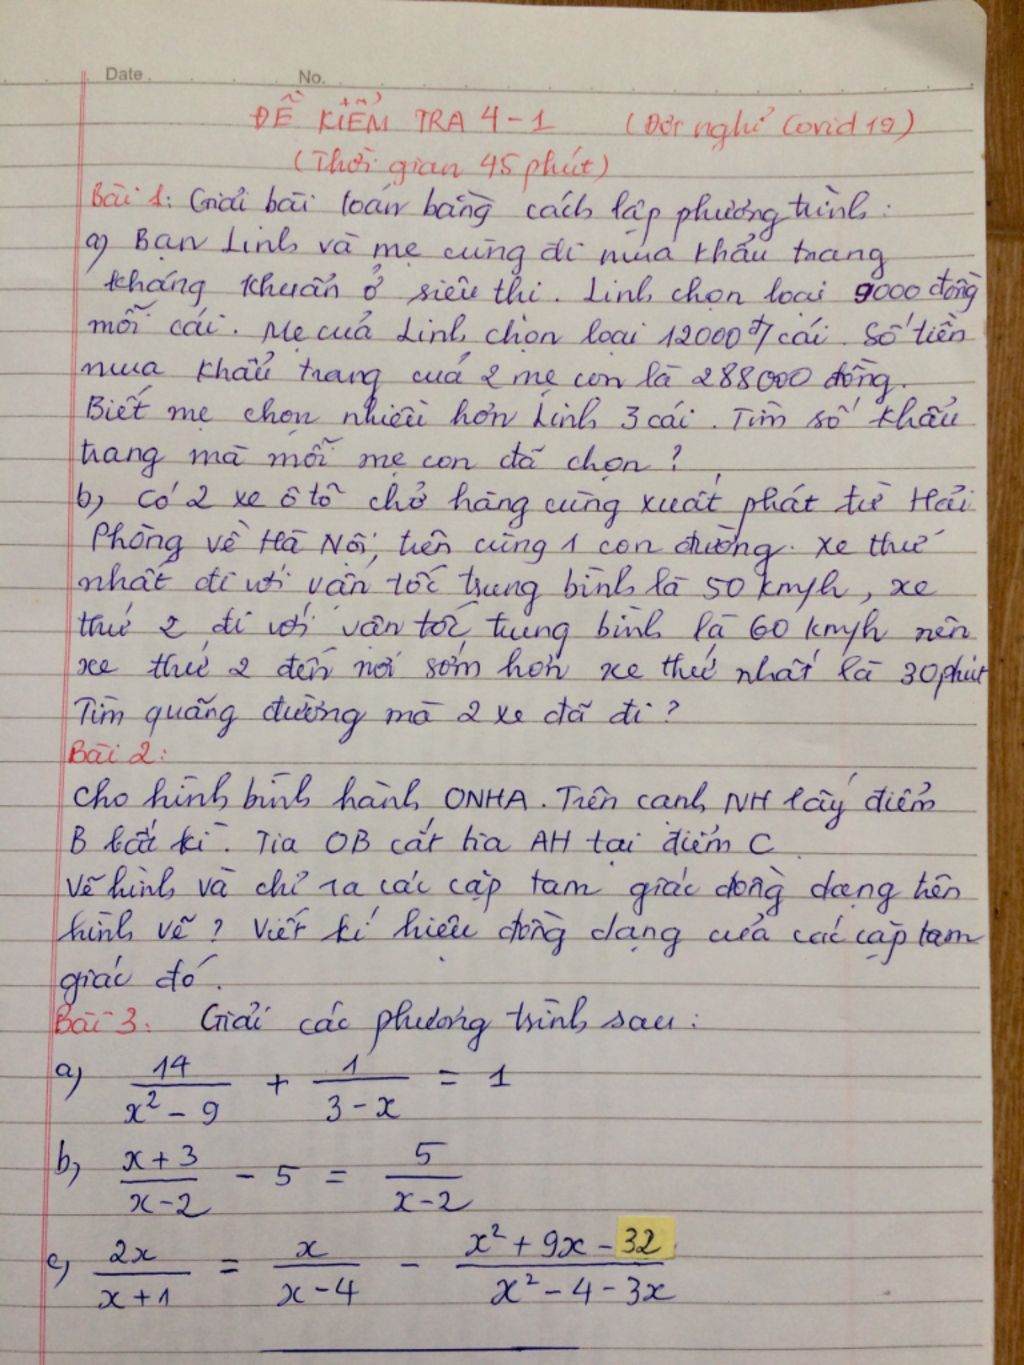 Date No.
ĐỀ KIỂM TRA 4-1 (Đợt nghỉ Covid 19)
(Thời gian 45 phút)
Bài 1: Giải bài toán bằng cách lập phương trình:
a) Bạn Linh và mẹ cùng đi mua khẩu trang
kháng khuẩn ở siêu thị. Linh chọn loại 9000 đồng
mỗi cái. Mẹ của Linh chọn loại 12000đ/cái. Số tiền
mua khẩu trang của 2 mẹ con là 288000 đồng.
Biết mẹ chọn nhiều hơn Linh 3 cái. Tìm số khẩu
trang mà mỗi mẹ con đã chọn?
b) Có 2 xe ô tô chở hàng cùng xuất phát từ Hải
Phòng về Hà Nội, trên cùng 1 con đường. Xe thứ
nhất đi với vận tốc trung bình là 50 km/h, xe
thứ 2 đi với vận tốc trung bình là 60 km/h nên
xe thứ 2 đến nơi sớm hơn xe thứ nhất là 30 phút
Tìm quãng đường mà 2 xe đã đi?
Bài 2:
Cho hình bình hành ONHA. Trên cạnh NH lấy điểm
B bất kì. Tia OB cắt tia AH tại điểm C.
Vẽ hình và chỉ ra các cặp tam giác đồng dạng trên
hình vẽ? Viết kí hiệu đồng dạng của các cặp tam
giác đó.
Bài 3: Giải các phương trình sau:
a) 14/(x² - 9) + 1/(3 - x) = 1
b) (x + 3)/(x - 2) - 5 = 5/(x - 2)
c) 2x/(x + 1) = x/(x - 4) - (x² + 9x - 32)/(x² - 4 - 3x)